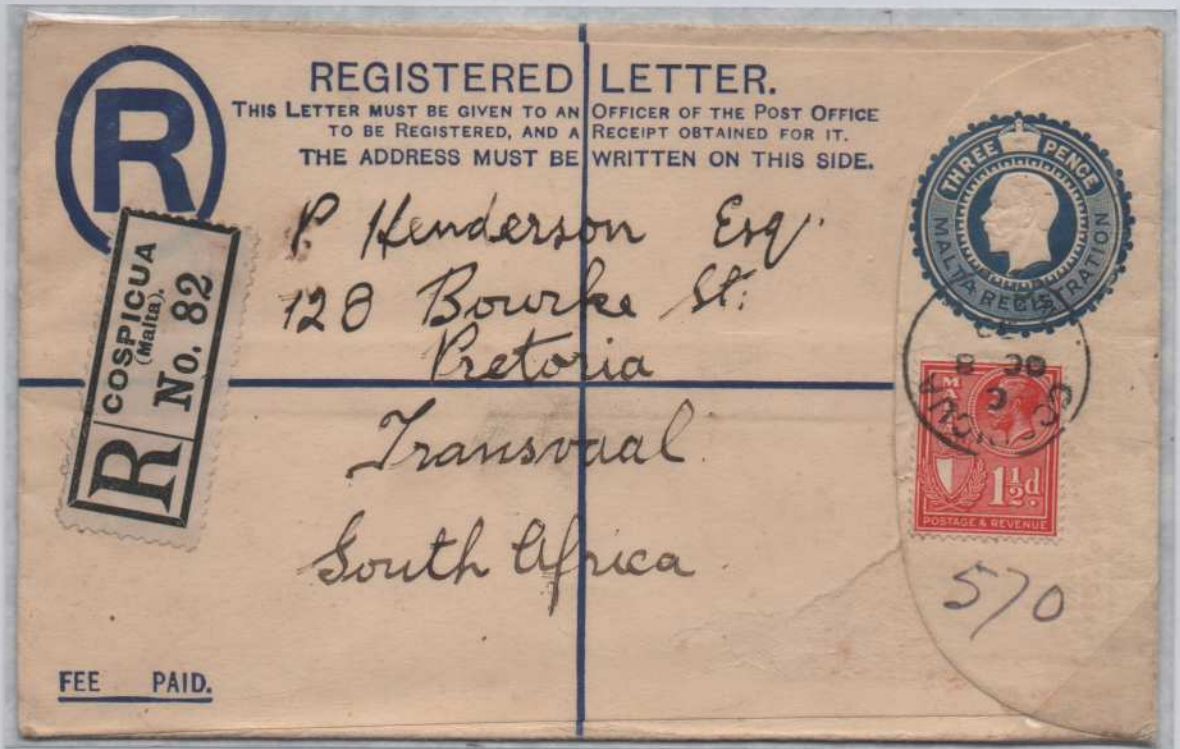 R
REGISTERED LETTER.
THIS LETTER MUST BE GIVEN TO AN OFFICER OF THE POST OFFICE
TO BE REGISTERED, AND A RECEIPT OBTAINED FOR IT.
THE ADDRESS MUST BE WRITTEN ON THIS SIDE.
THREE PENCE
MALTA REGISTRATION
P. Henderson Esq.
128 Bourke St.
Pretoria
Transvaal.
South Africa
R
COSPICUA
(Malta).
No. 82
COSPICUA
MALTA
1½d.
POSTAGE & REVENUE
570
FEE PAID.